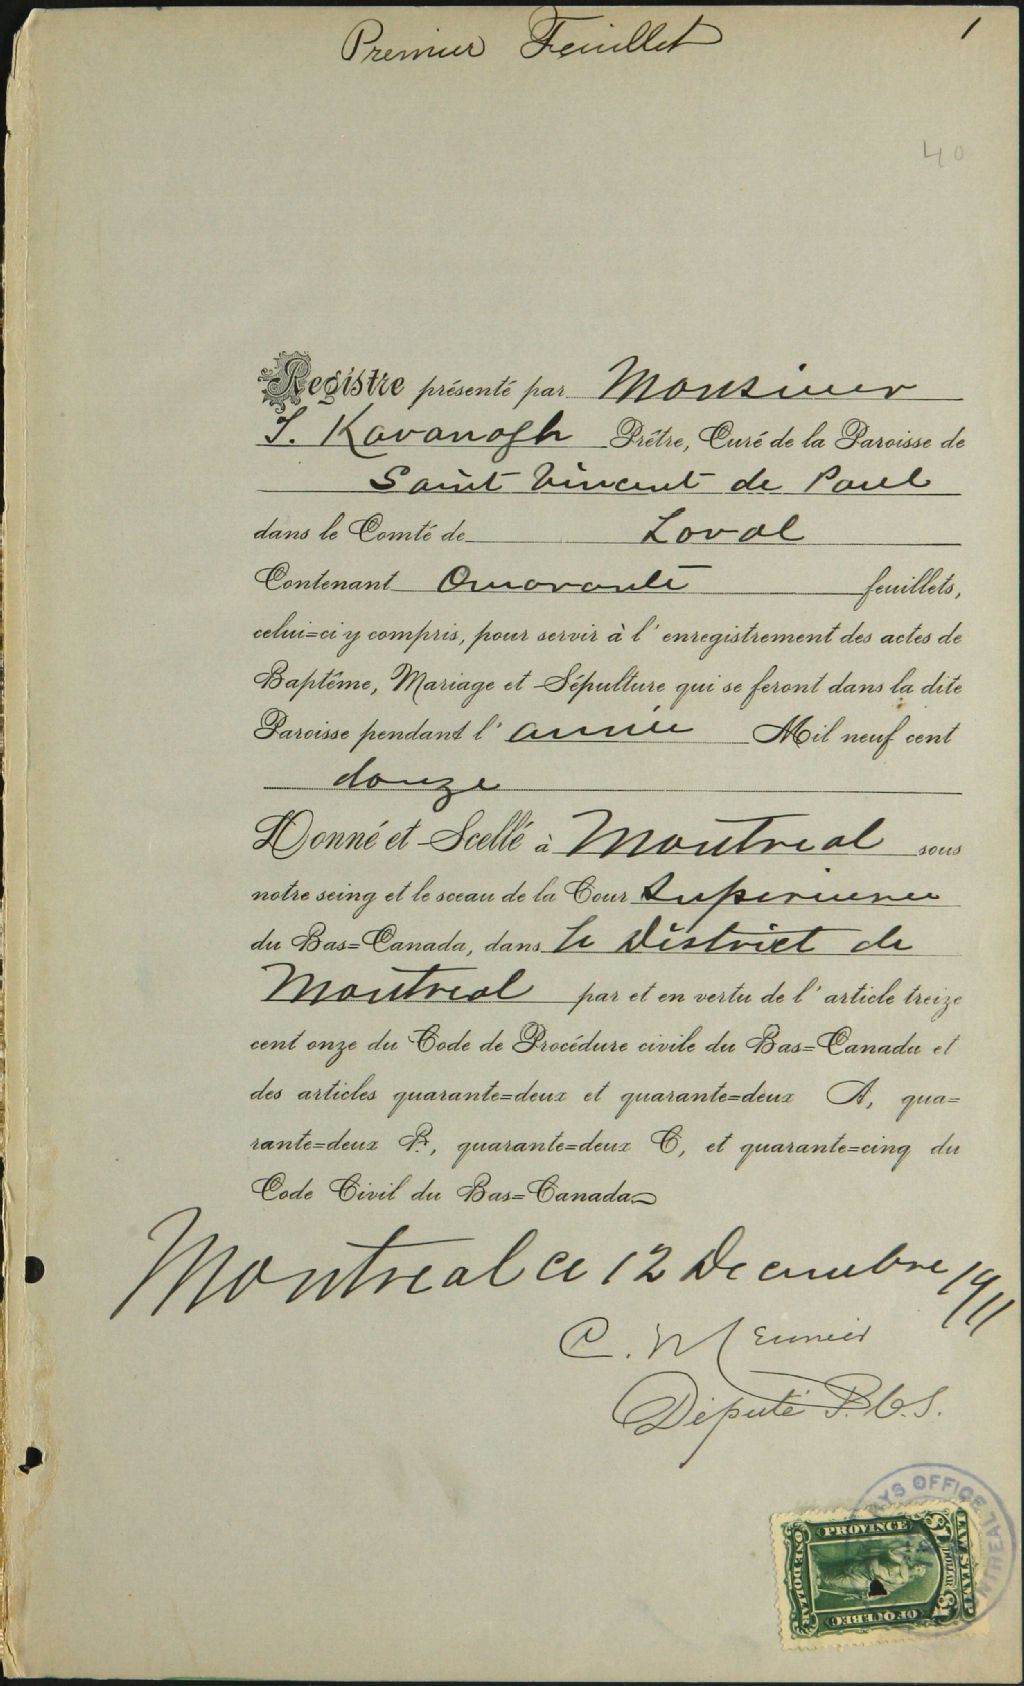 Premier Feuillet
1
40
Registre présenté par Monsieur
J. Kavanagh Prêtre, Curé de la Paroisse de
Saint Vincent de Paul
dans le Comté de Laval
Contenant Quarante feuillets,
celui=ci y compris, pour servir à l'enregistrement des actes de
Baptême, Mariage et Sépulture qui se feront dans la dite
Paroisse pendant l'année Mil neuf cent
douze
Donné et Scellé à Montreal sous
notre seing et le sceau de la Cour Superieure
du Bas=Canada, dans le District de
Montreal par et en vertu de l'article treize
cent onze du Code de Procédure civile du Bas=Canada et
des articles quarante=deux et quarante=deux A, qua=
rante=deux B, quarante=deux C, et quarante=cinq du
Code Civil du Bas=Canada
Montreal ce 12 Decembre 1911
C. Meunier
Député P.C.S.
OFFICE
LAW STAMP
$1 DOLLAR $1
PROVINCE
OF QUEBEC
ONE DOLLAR